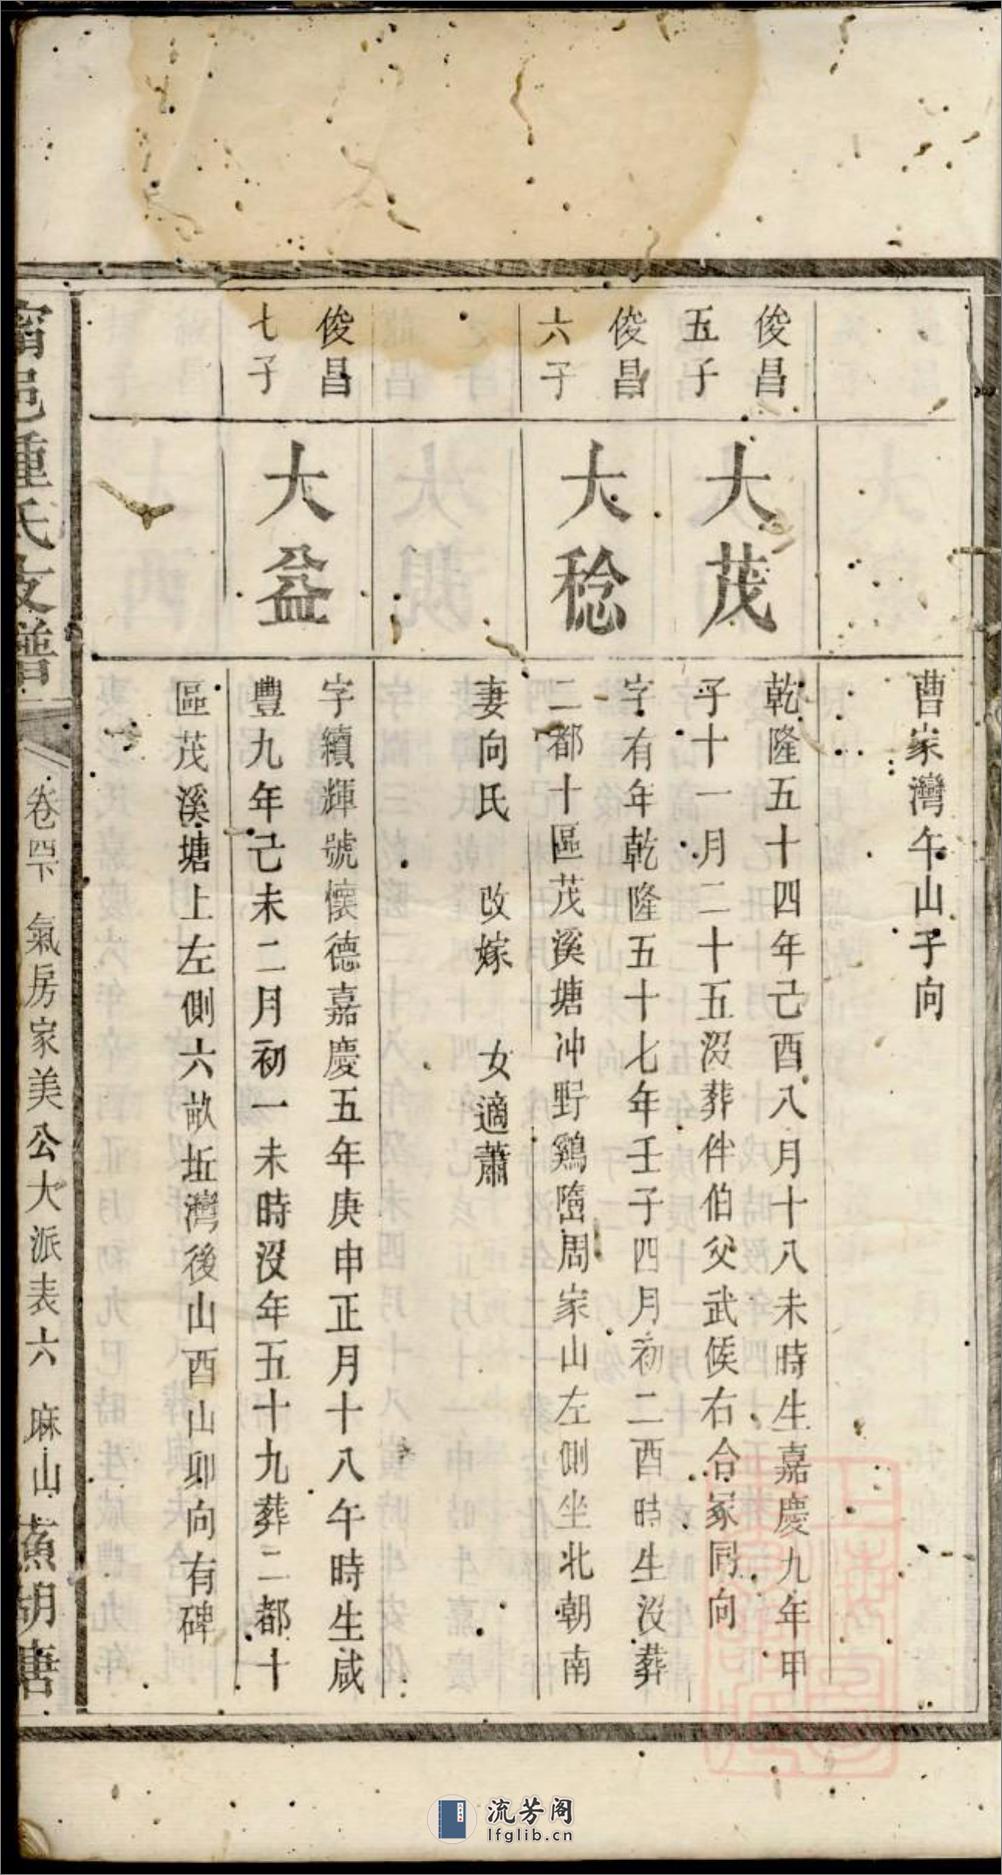 曹家灣午山子向
俊昌
五子
大茂
乾隆五十四年己酉八月十八未時生嘉慶九年甲
子十一月二十五沒葬伴伯父武侯右合冢同向
俊昌
六子
大稔
字有年乾隆五十七年壬子四月初二酉時生沒葬
二都十區茂溪塘冲野鷄墮周家山左側坐北朝南
妻向氏 改嫁 女適蕭
俊昌
七子
大益
字纘輝號懷德嘉慶五年庚申正月十八午時生咸
豐九年己未二月初一未時沒年五十九葬二都十
區茂溪塘上左側六畝坵灣後山酉山卯向有碑
甯邑鍾氏支譜
卷四下 氣房家美公大派表六 麻山蕉胡唐
流芳阁
lfglib.cn